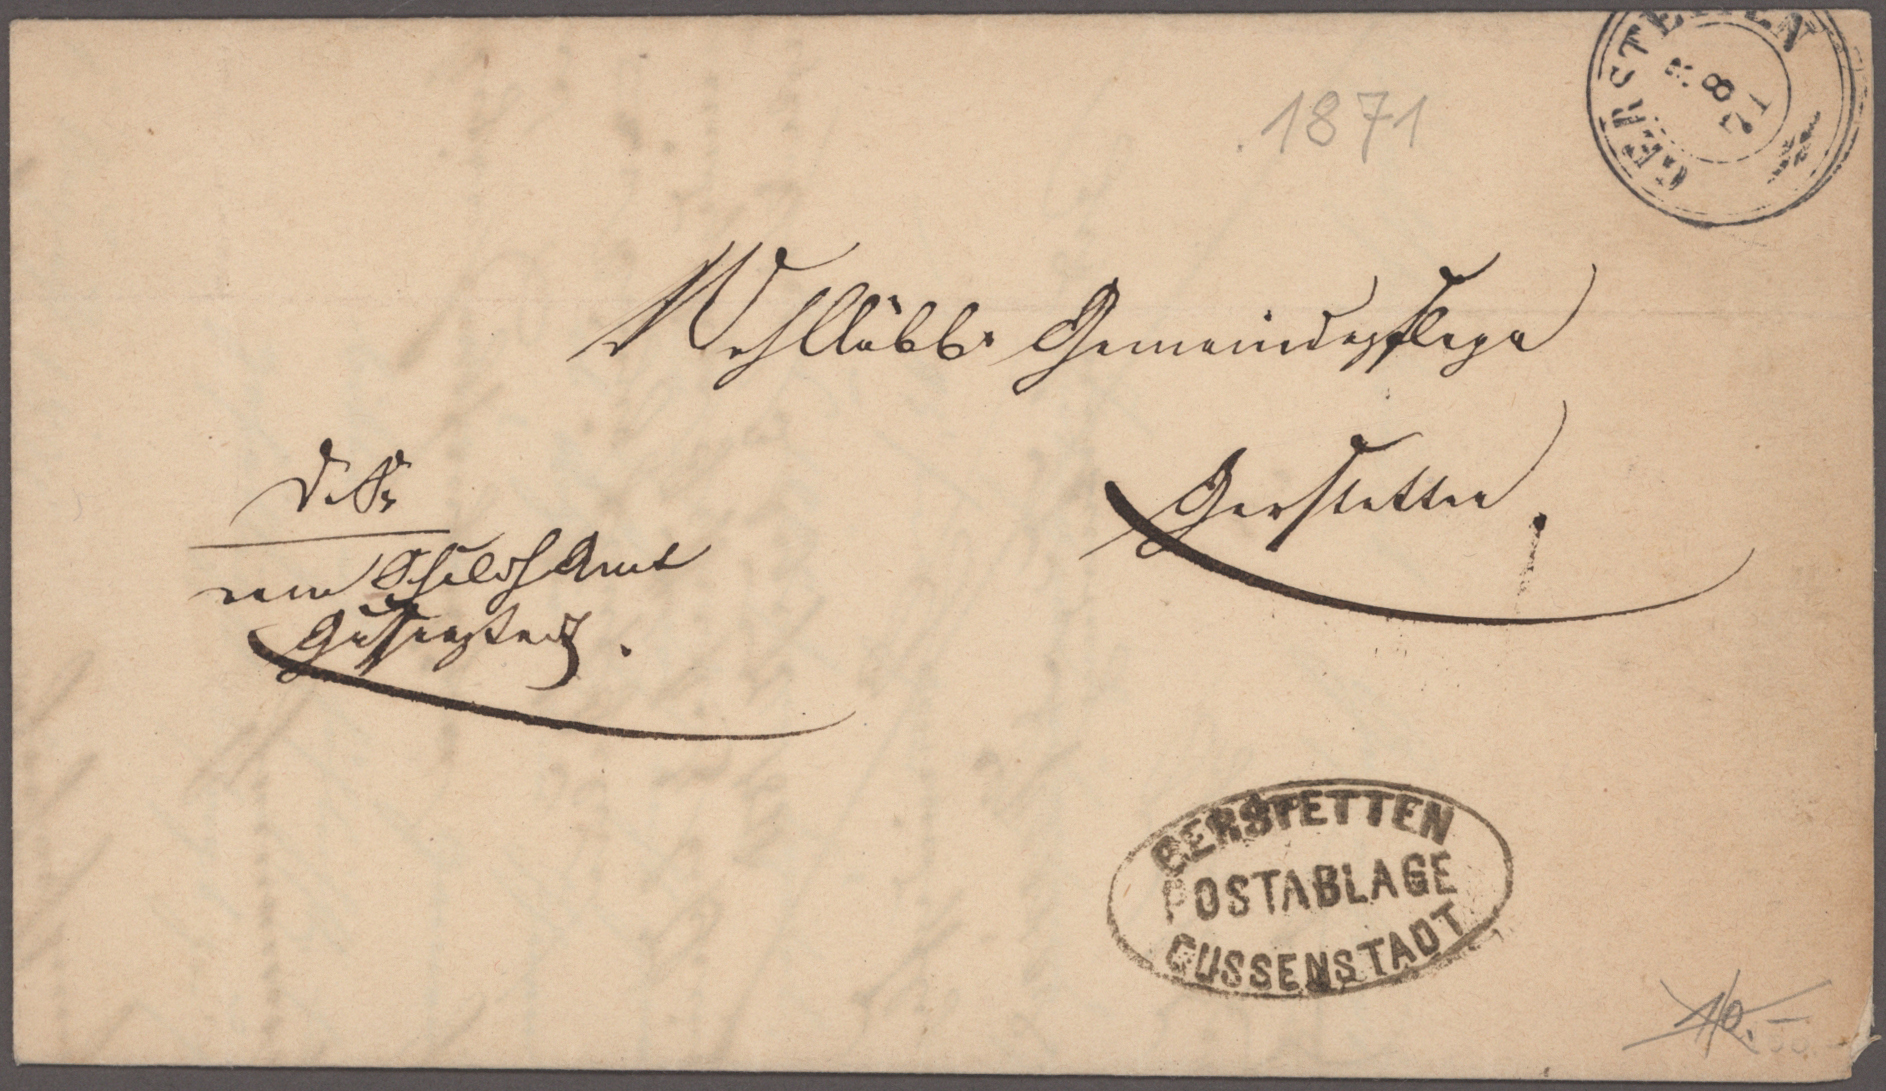 GERSTETTEN
8 71
1871
Wohllöbl. Gemeindepflege
Gerstetten.
vom Schuldh. Amt
Gussenstadt.
GERSTETTEN
POSTABLAGE
GUSSENSTADT
10.-